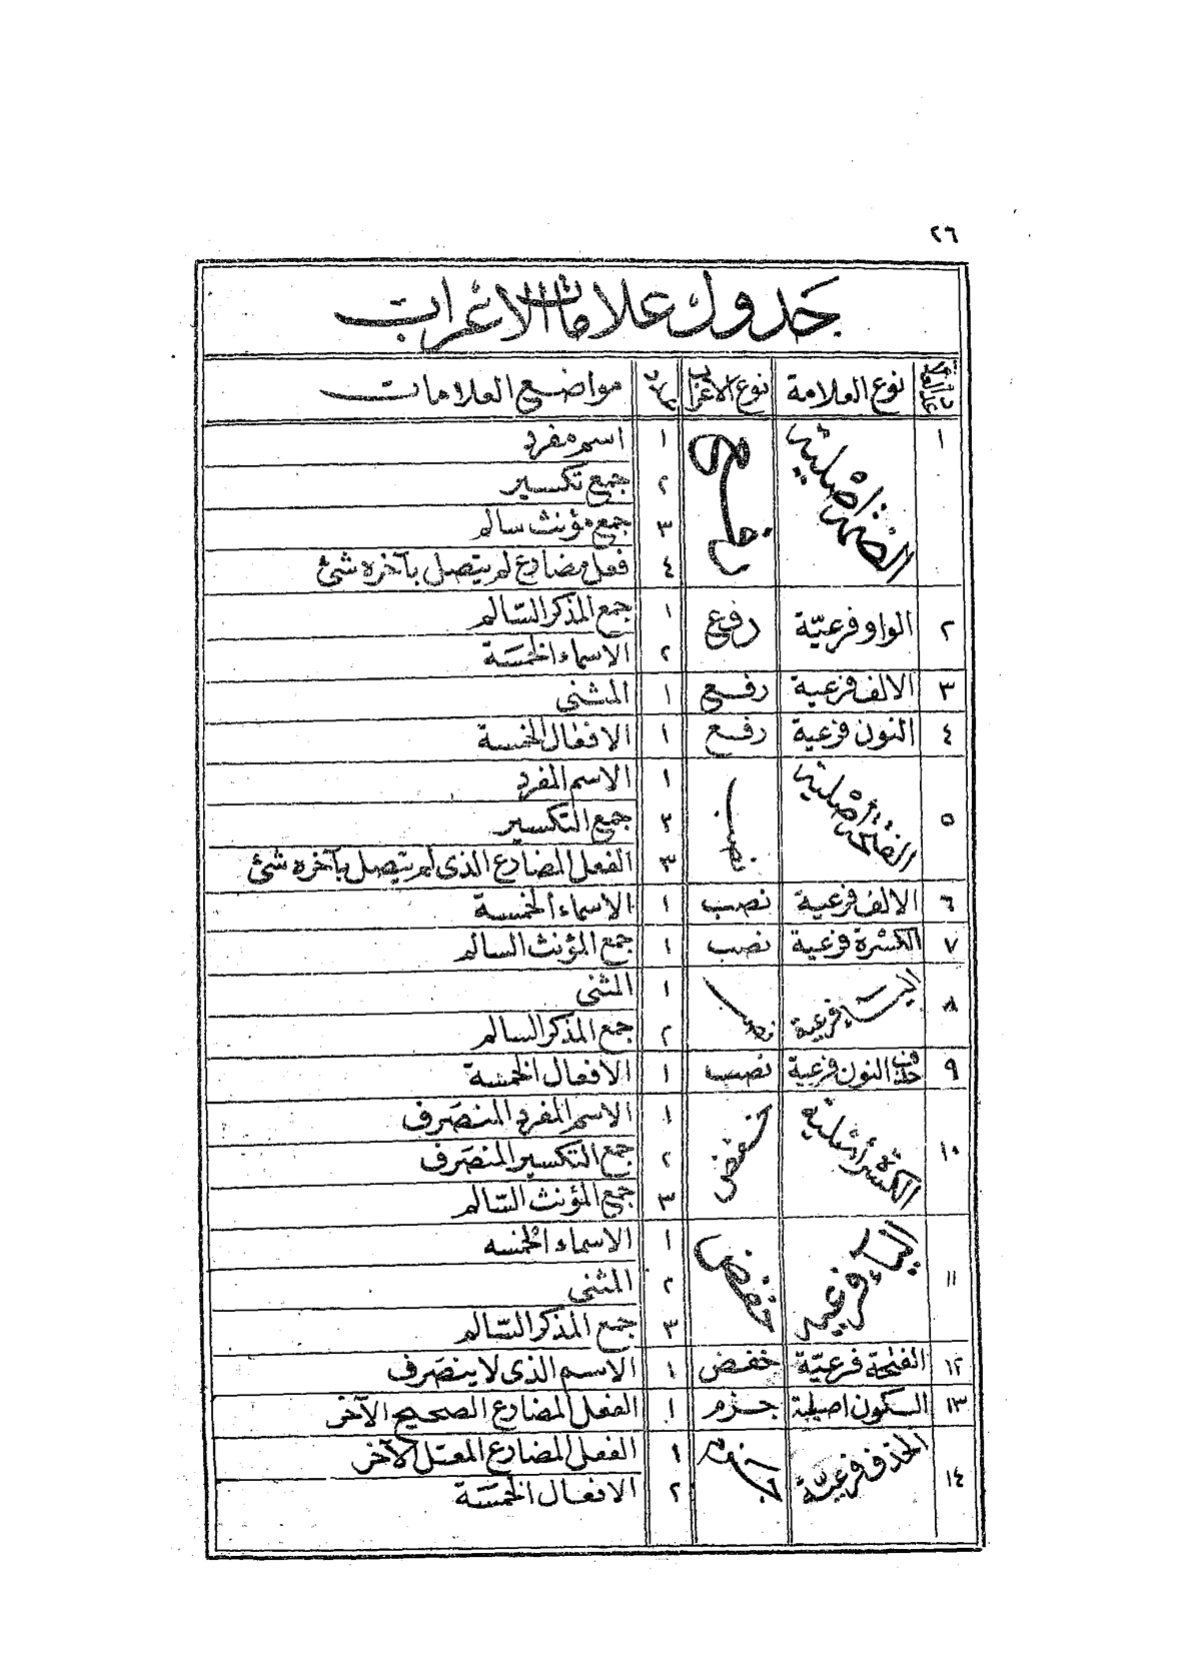 ٢٦
جدول علامات الاعراب
نوع العلامة نوع الاعراب مواضع العلامات
١ الضمة اصلية رفع ١ اسم مفرد
٢ جمع تكسير
٣ جمع مؤنث سالم
٤ فعل مضارع لم يتصل بآخره شئ
٢ الواو فرعيّة رفع ١ جمع المذكر السّالم
٢ الاسماء الخمسَة
٣ الالف فرعية رفع ١ المثنى
٤ النون فرعية رفع ١ الافعال الخمسة
٥ الفتحة اصلية نصب ١ الاسم المفرد
٢ جمع التكسير
٣ الفعل المضارع الذى لم يتصل بآخره شئ
٦ الالف فرعية نصب ١ الاسماء الخمسة
٧ الكسْرة فرعية نصب ١ جمع المؤنث السالم
٨ اليــاء فرعية نصب ١ المثنى
٢ جمع المذكر السالم
٩ حذف النون فرعية نصب ١ الافعال الخمسة
١٠ الكسْرة أصلية خفض ١ الاسم المفرد المنصَرف
٢ جمع التكسير المنصَرف
٣ جمع المؤنث السّالم
١١ اليــاء فرعيه خفض ١ الاسماء الخمسه
٢ المثنى
٣ جمع المذكر السّالم
١٢ الفتحة فرعيّة خفض ١ الاسم الذى لا ينصَرف
١٣ السكون اصلية جزم ١ الفعل المضارع الصحيح الآخر
١٤ الحذف فرعيّة جزم ١ الفعل المضارع المعتل الآخر
٢ الافعال الخمسَة